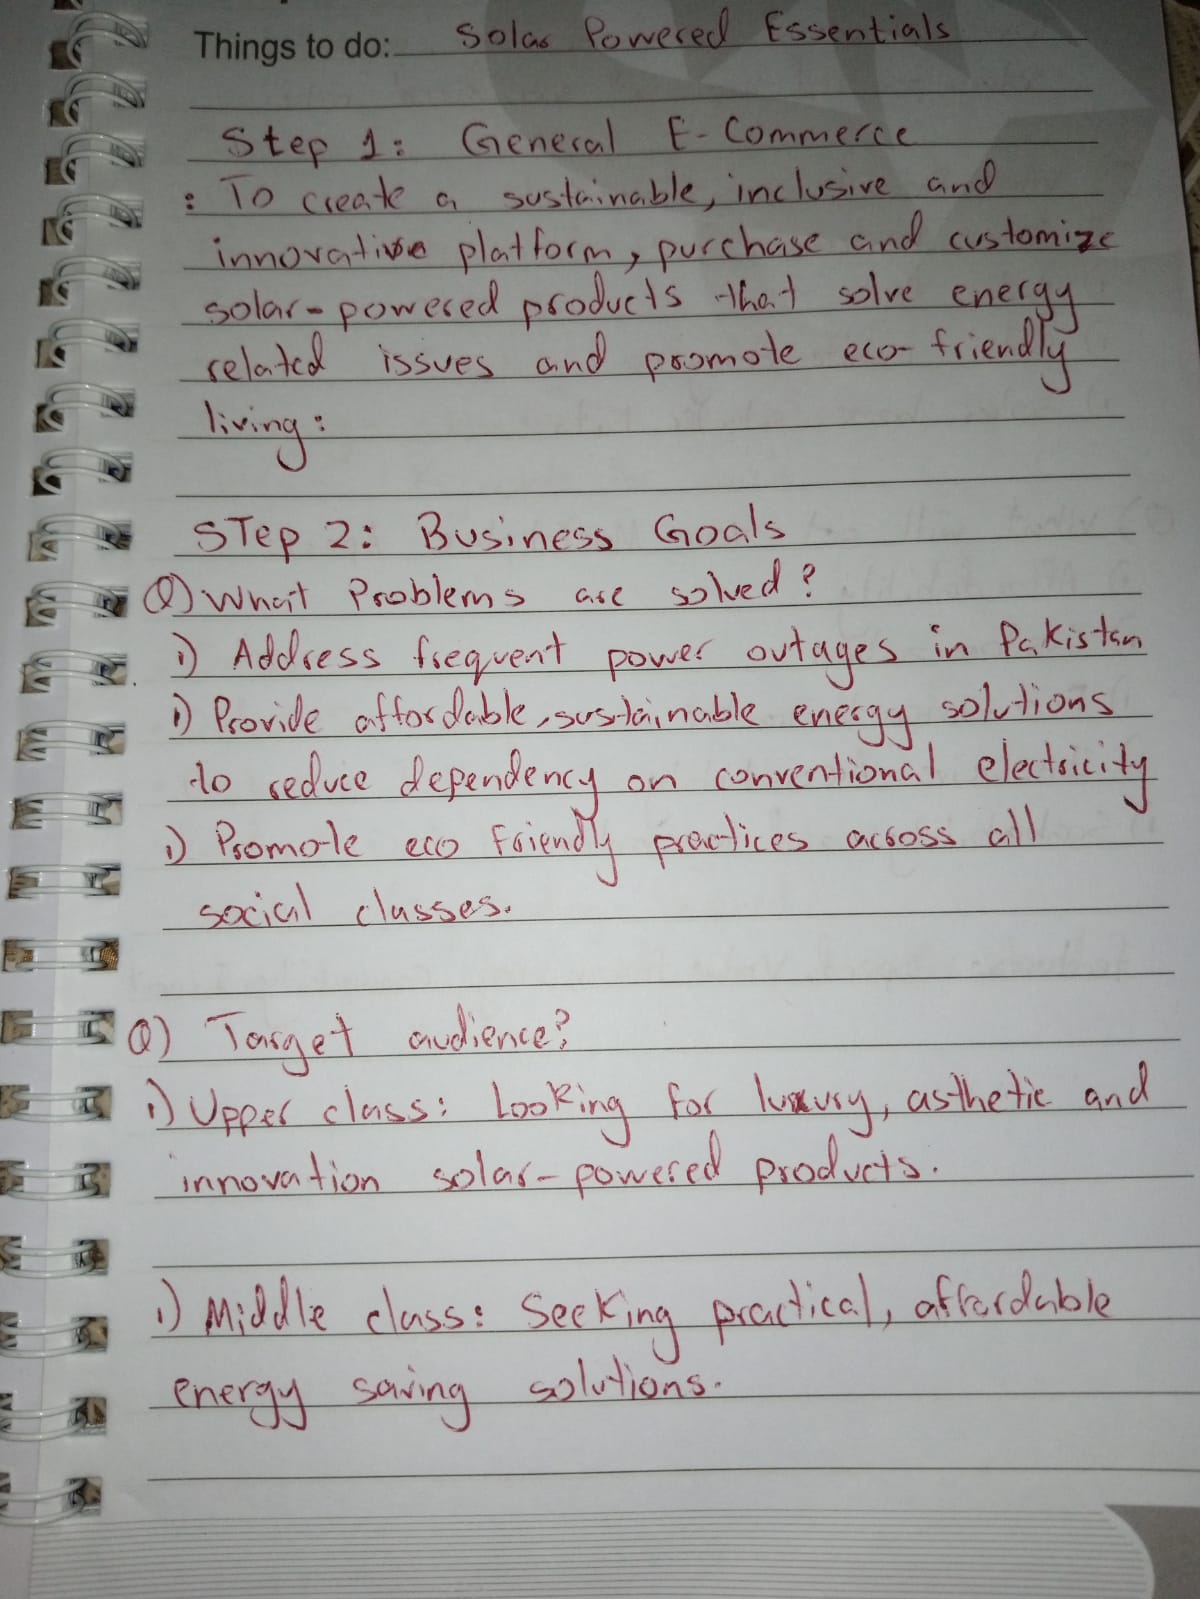 Things to do: Solar Powered Essentials
Step 1: General E-Commerce
: To create a sustainable, inclusive and
innovative platform, purchase and customize
solar-powered products that solve energy
related issues and promote eco-friendly
living:
STep 2: Business Goals
Q) What Problems are solved?
i) Address frequent power outages in Pakistan
i) Provide affordable, sustainable energy solutions
to reduce dependency on conventional electricity
i) Promote eco Friendly practices across all
social classes.
Q) Target audience?
i) Upper class: Looking for luxury, asthetic and
innovation solar-powered products.
i) Middle class: Seeking practical, affordable
energy saving solutions.